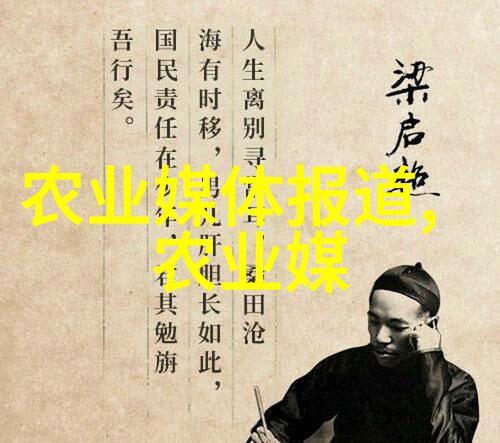 梁启超
人生离别寻田沧
海有时移，男儿肝胆长如此，
国民责任在年，其勉旃
吾行矣。
农业媒体报道,
农业媒